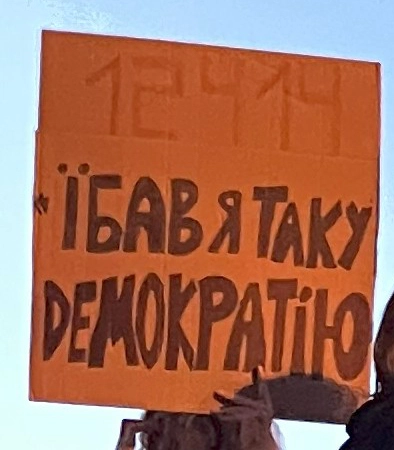 12414
*ЇБАВ Я ТАКУ
DЕМОКРАТІЮ